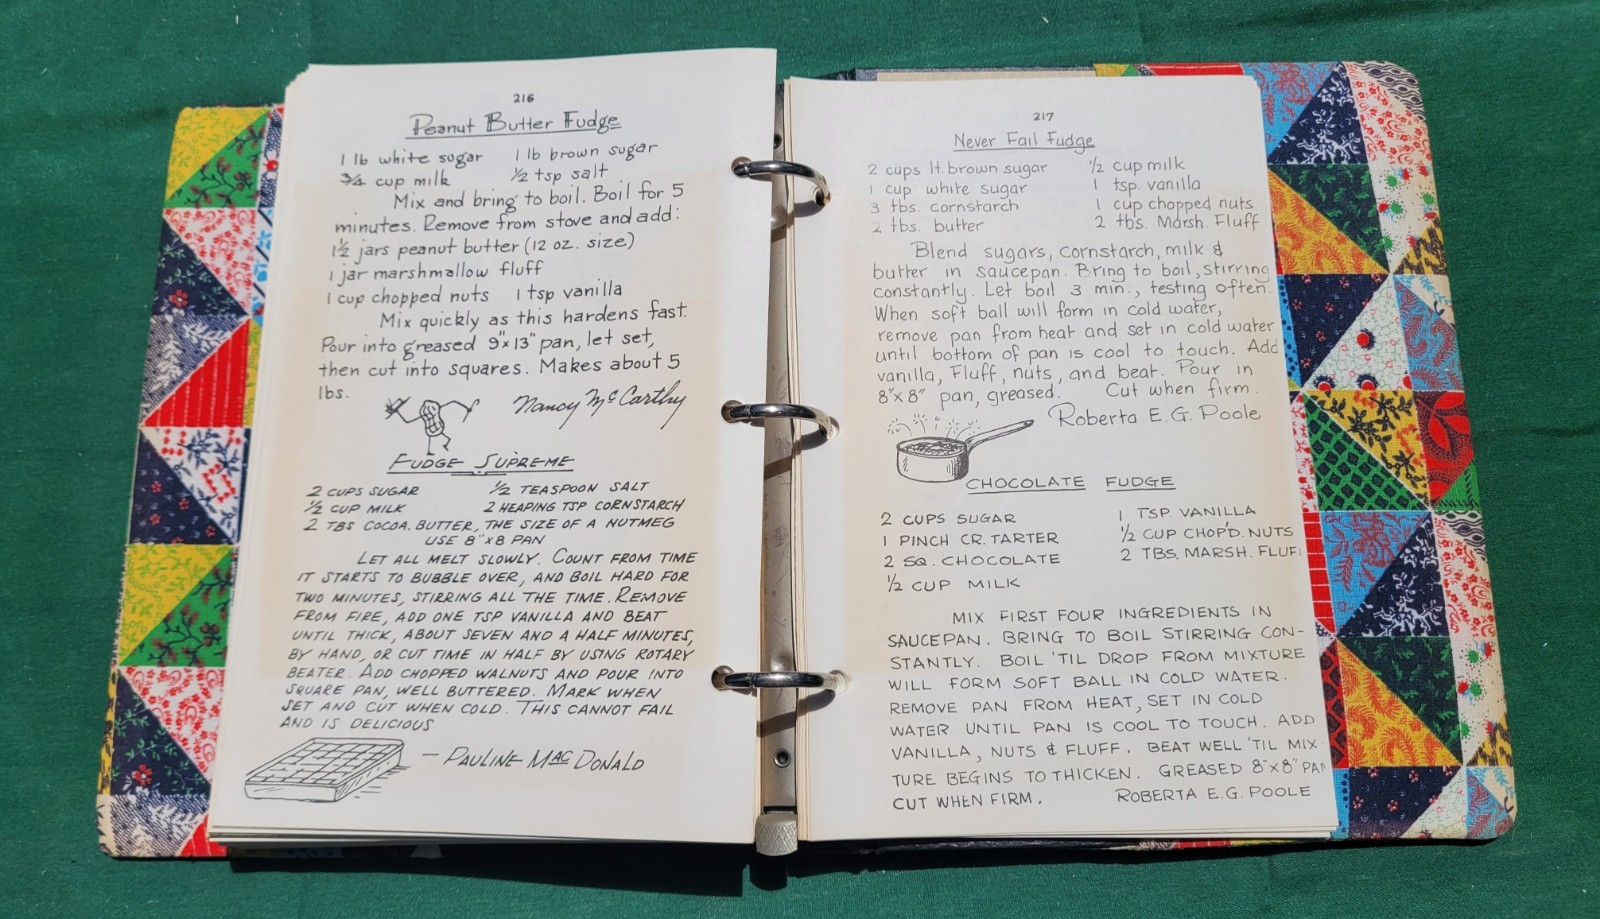 216
Peanut Butter Fudge
1 lb white sugar 1 lb brown sugar
3/4 cup milk 1/2 tsp salt
Mix and bring to boil. Boil for 5
minutes. Remove from stove and add:
1 1/2 jars peanut butter (12 oz. size)
1 jar marshmallow fluff
1 cup chopped nuts 1 tsp vanilla
Mix quickly as this hardens fast.
Pour into greased 9"x13" pan, let set,
then cut into squares. Makes about 5
lbs.
Nancy McCarthy
FUDGE SUPREME
2 CUPS SUGAR 1/2 TEASPOON SALT
1/2 CUP MILK 2 HEAPING TSP CORNSTARCH
2 TBS COCOA. BUTTER, THE SIZE OF A NUTMEG
USE 8"x8 PAN
LET ALL MELT SLOWLY. COUNT FROM TIME
IT STARTS TO BUBBLE OVER, AND BOIL HARD FOR
TWO MINUTES, STIRRING ALL THE TIME. REMOVE
FROM FIRE, ADD ONE TSP VANILLA AND BEAT
UNTIL THICK, ABOUT SEVEN AND A HALF MINUTES,
BY HAND, OR CUT TIME IN HALF BY USING ROTARY
BEATER. ADD CHOPPED WALNUTS AND POUR INTO
SQUARE PAN, WELL BUTTERED. MARK WHEN
SET AND CUT WHEN COLD. THIS CANNOT FAIL
AND IS DELICIOUS
— PAULINE MACDONALD
217
Never Fail Fudge
2 cups lt. brown sugar 1/2 cup milk
1 cup white sugar 1 tsp. vanilla
3 tbs. cornstarch 1 cup chopped nuts
2 tbs. butter 2 tbs. Marsh. Fluff
Blend sugars, cornstarch, milk &
butter in saucepan. Bring to boil, stirring
constantly. Let boil 3 min., testing often.
When soft ball will form in cold water,
remove pan from heat and set in cold water
until bottom of pan is cool to touch. Add
vanilla, Fluff, nuts, and beat. Pour in
8"x8" pan, greased. Cut when firm.
Roberta E.G. Poole
CHOCOLATE FUDGE
2 CUPS SUGAR 1 TSP. VANILLA
1 PINCH CR. TARTER 1/2 CUP CHOP'D. NUTS
2 SQ. CHOCOLATE 2 TBS. MARSH. FLUF
1/2 CUP MILK
MIX FIRST FOUR INGREDIENTS IN
SAUCEPAN. BRING TO BOIL STIRRING CON-
STANTLY. BOIL 'TIL DROP FROM MIXTURE
WILL FORM SOFT BALL IN COLD WATER.
REMOVE PAN FROM HEAT, SET IN COLD
WATER UNTIL PAN IS COOL TO TOUCH. ADD
VANILLA, NUTS & FLUFF. BEAT WELL 'TIL MIX
TURE BEGINS TO THICKEN. GREASED 8"x8" PAN
CUT WHEN FIRM. ROBERTA E.G. POOLE